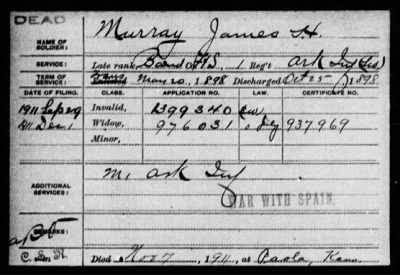 DEAD
NAME OF SOLDIER: Murray James H.
SERVICE: Late rank, Band F&S, 1 Reg't Ark Inf
TERM OF SERVICE: May 20, 1898 Discharged Oct 25, 1898
DATE OF FILING. CLASS. APPLICATION NO. LAW. CERTIFICATE NO.
1911 Sep 29 Invalid, 1399340
1911 Dec 1 Widow, 976031 937969
Minor,
ADDITIONAL SERVICES: M, Ark Inf
WAR WITH SPAIN.
REMARKS:
C. S. R.
Died Nov 7, 1911, at Paola, Kans.